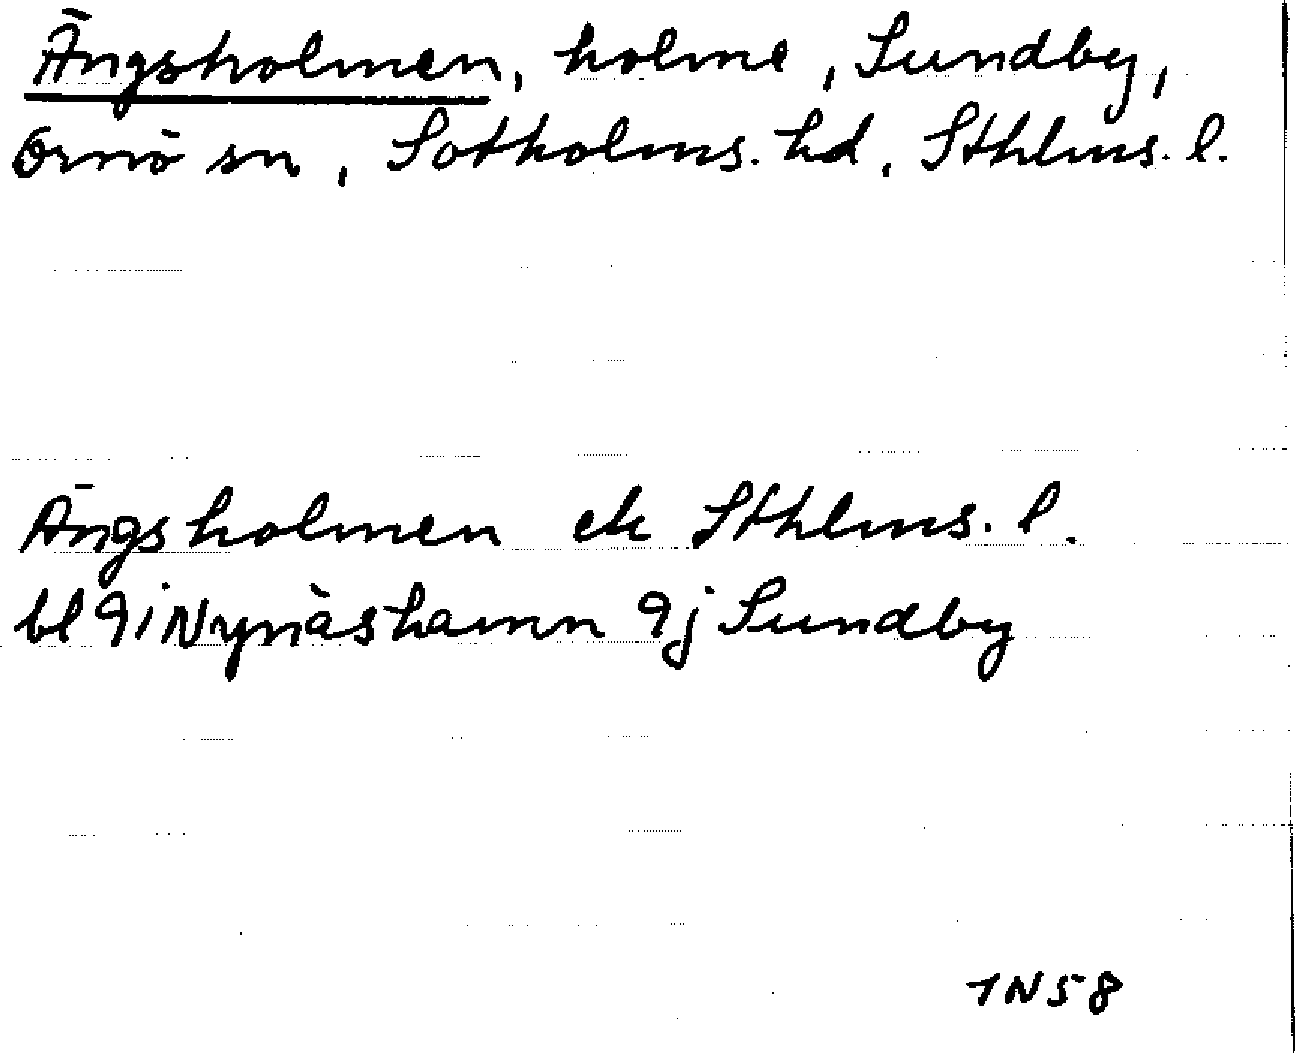 Ängsholmen, holme, Sundby,
Ornö sn, Sotholms. hd, Sthlms. l.
Ängsholmen ek Sthlms. l.
bl 9i Nynäshamn 9j Sundby
1N58